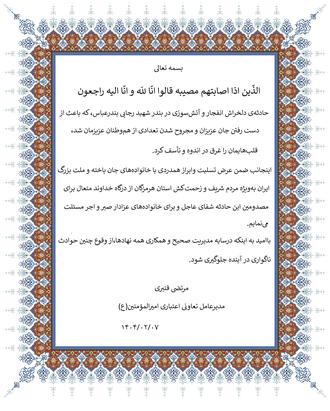 بسمه تعالی
الذّین اذا اصابتهم مصیبه قالوا انّا لله و انّا الیه راجعون
حادثه‌ی دلخراش انفجار و آتش‌سوزی در بندر شهید رجایی بندرعباس، که باعث از
دست رفتن جان عزیزان و مجروح شدن تعدادی از هم‌وطنان عزیزمان شد،
قلب‌هایمان را غرق در اندوه و تأسف کرد.
اینجانب ضمن عرض تسلیت وابراز همدردی با خانواده‌های جان باخته و ملت بزرگ
ایران به‌ویژه مردم شریف و زحمت‌کش استان هرمزگان از درگاه خداوند متعال برای
مصدومین این حادثه شفای عاجل و برای خانواده‌های عزادار صبر و اجر مسئلت
می‌نمایم.
باامید به اینکه درسایه مدیریت صحیح و همکاری همه نهادهااز وقوع چنین حوادث
ناگواری در آینده جلوگیری شود.
مرتضی قنبری
مدیرعامل تعاونی اعتباری امیرالمؤمنین(ع)
۱۴۰۴/۰۲/۰۷